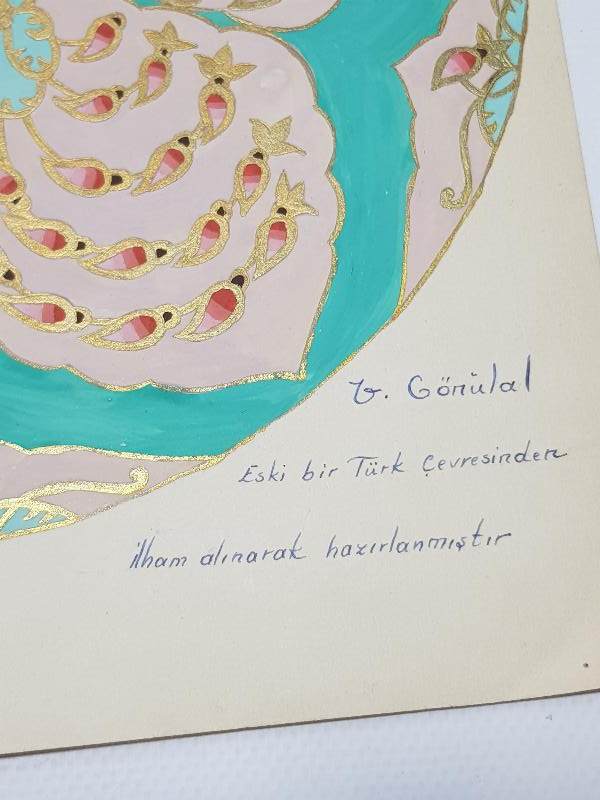 V. Gönülal
Eski bir Türk Çevresinden
ilham alınarak hazırlanmıştır